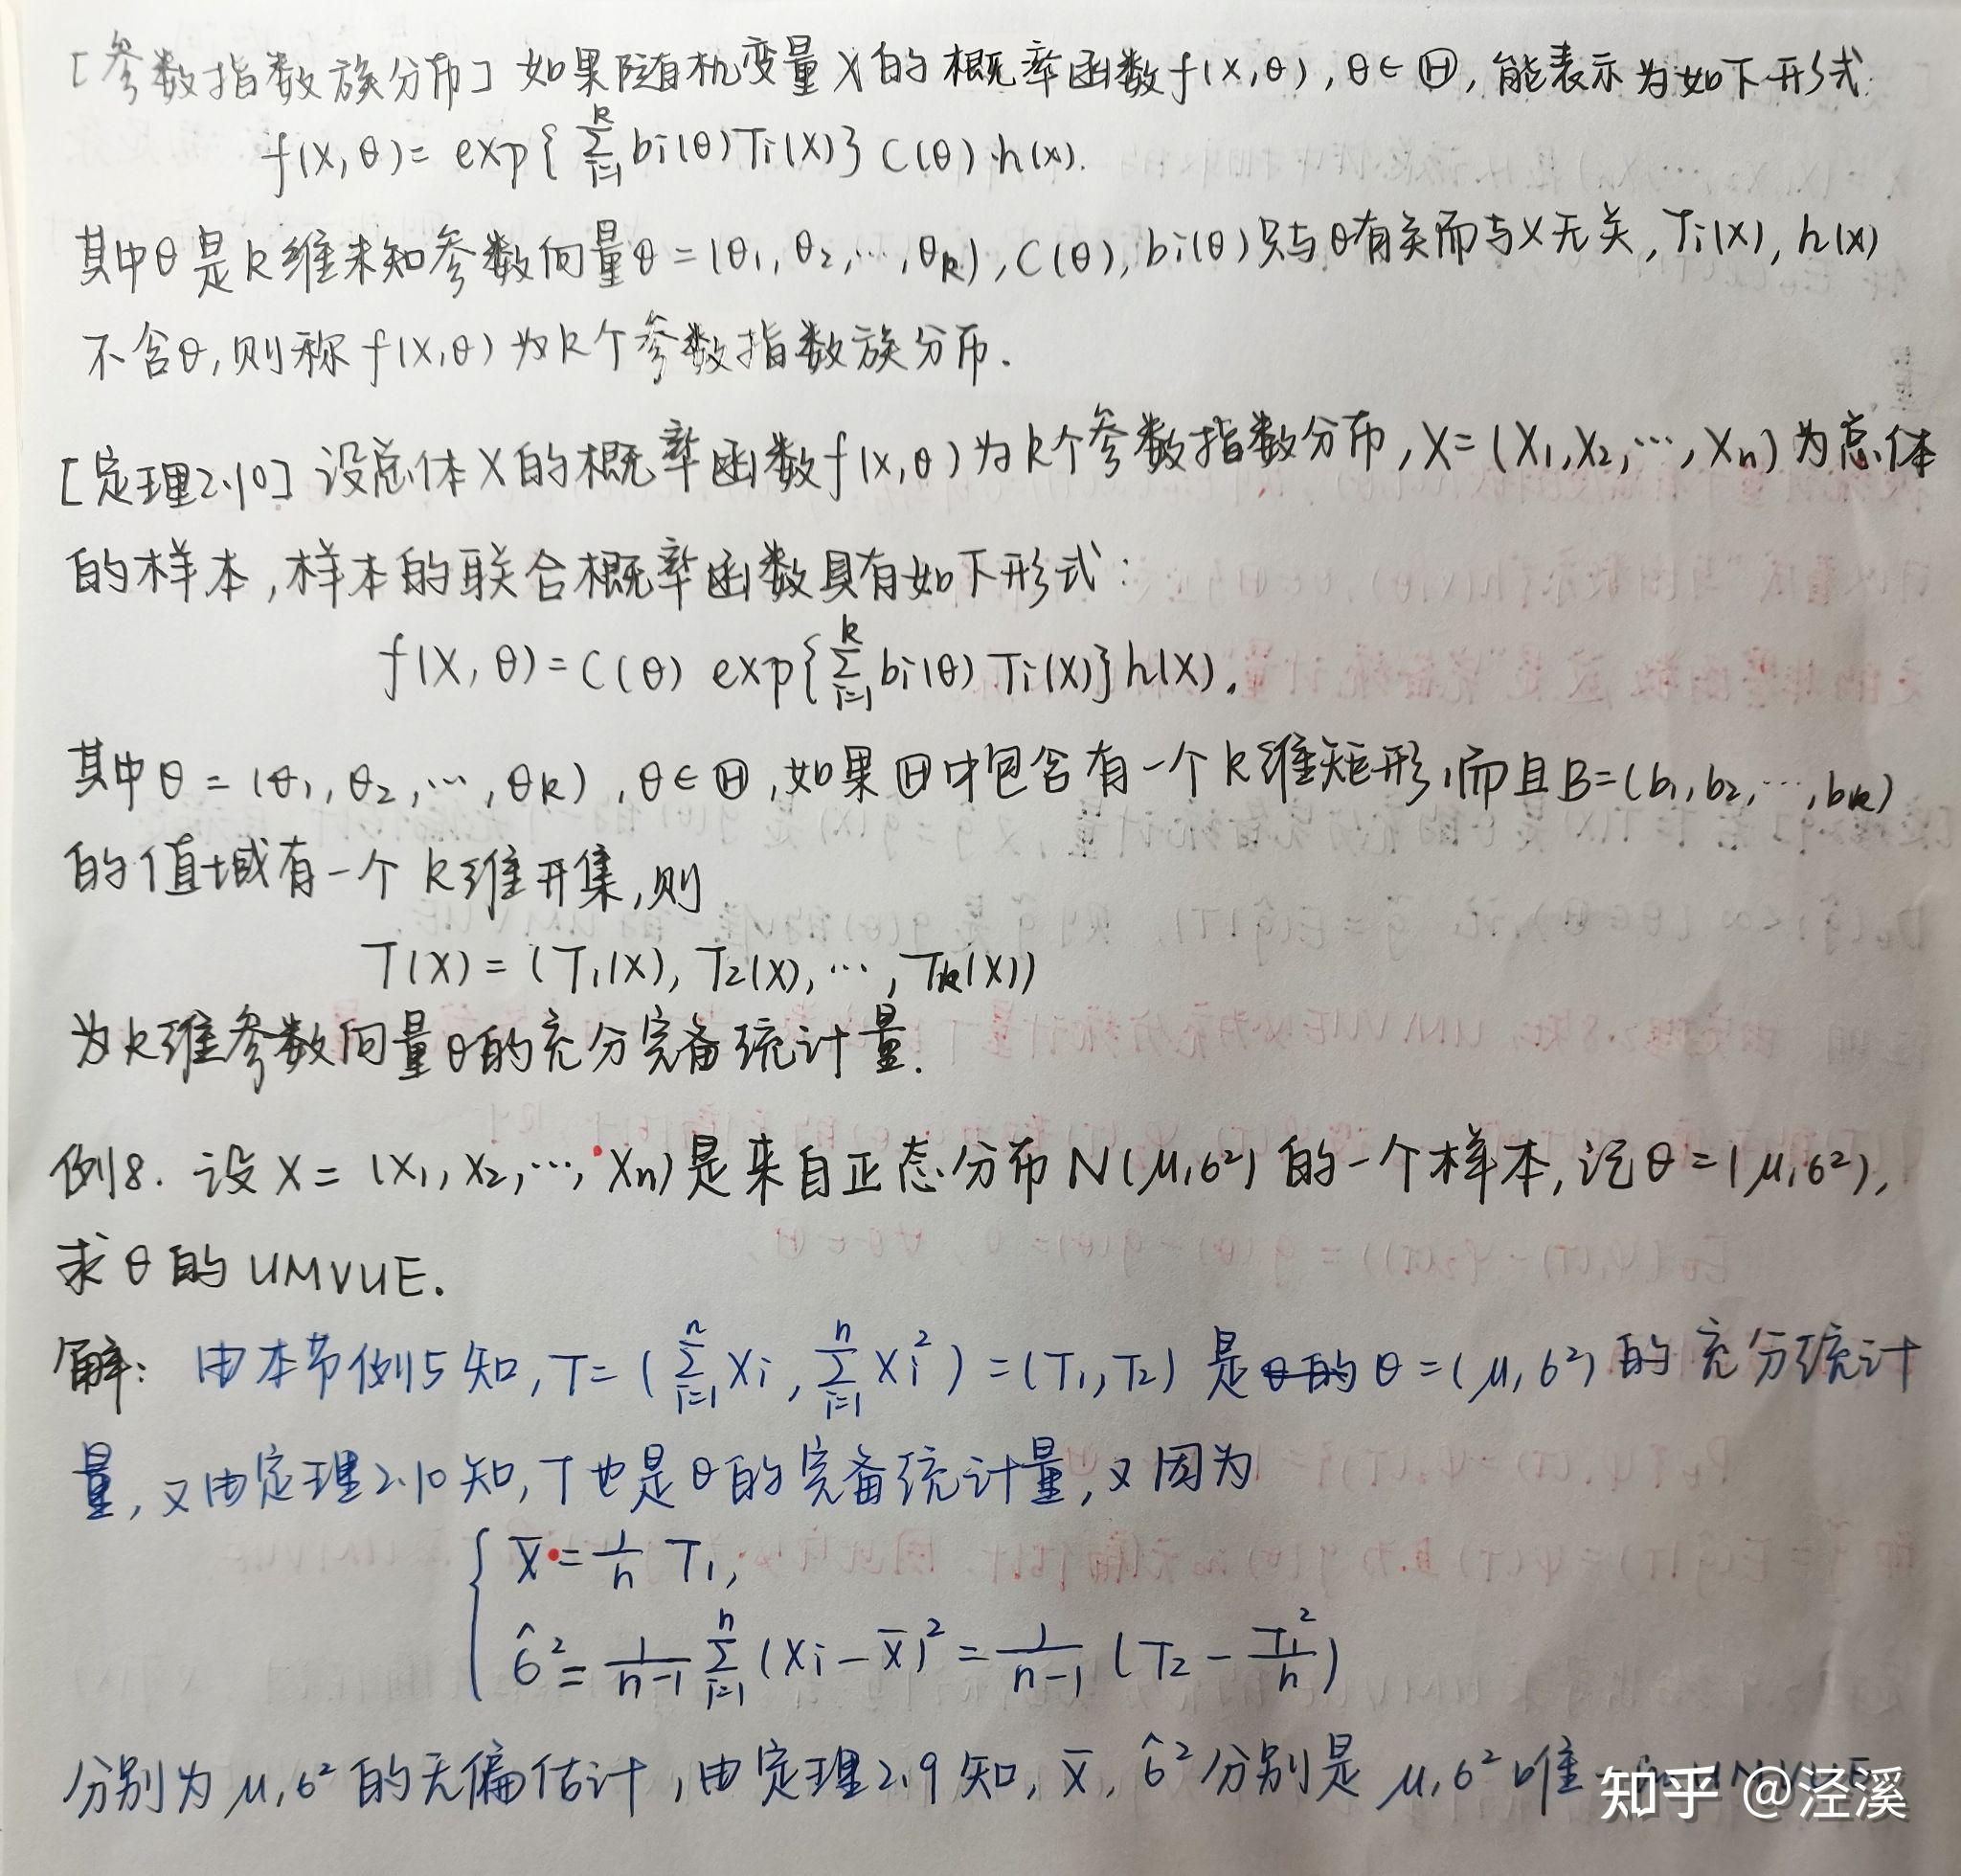 [参数指数族分布] 如果随机变量X的概率函数f(x,θ),θ∈Ⓗ,能表示为如下形式:
f(x,θ)= exp{ ∑_{i=1}^{k} bi(θ)Ti(x)} C(θ)·h(x).
其中θ是k维未知参数向量θ=(θ₁,θ₂,…,θk),C(θ),bi(θ)只与θ有关而与X无关,Ti(x),h(x)
不含θ,则称f(x,θ)为k个参数指数族分布.
[定理2.10] 设总体X的概率函数f(x,θ)为k个参数指数分布,X=(X₁,X₂,…,Xn)为总体
的样本,样本的联合概率函数具有如下形式:
f(X,θ)=C(θ) exp{∑_{i=1}^{k} bi(θ) Ti(X)}h(X).
其中θ=(θ₁,θ₂,…,θk),θ∈Ⓗ,如果Ⓗ中包含有一个k维矩形,而且B=(b₁,b₂,…,bk)
的值域有一个k维开集,则
T(X)=(T₁(X),T₂(X),…,Tk(X))
为k维参数向量θ的充分完备统计量.
例8. 设X=(X₁,X₂,…,Xn)是来自正态分布N(μ,σ²)的一个样本,记θ=(μ,σ²),
求θ的UMVUE.
解: 由本节例5知,T=(∑_{i=1}^{n} Xi,∑_{i=1}^{n} Xi²)=(T₁,T₂)是θ的θ=(μ,σ²)的充分统计
量,又由定理2.10知,T也是θ的完备统计量,又因为
{ X̄=1/n T₁,
σ̂²=1/(n-1) ∑_{i=1}^{n} (Xi-X̄)²=1/(n-1) (T₂-T₁²/n)
分别为μ,σ²的无偏估计,由定理2.9知,X̄,σ̂²分别是μ,σ²唯
知乎 @泾溪